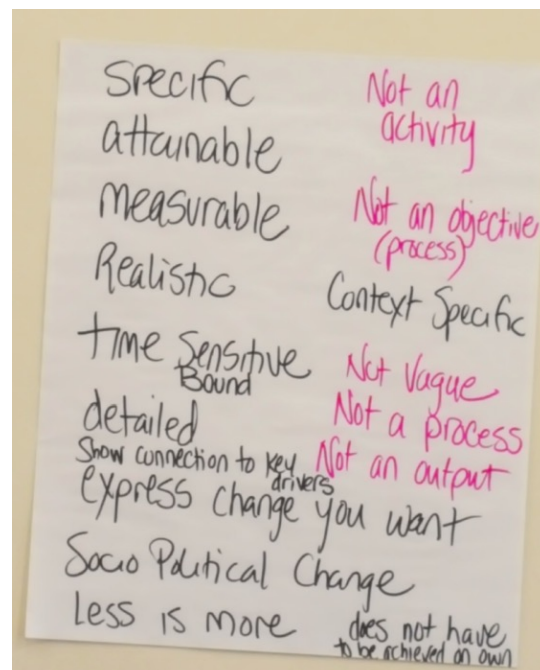 Specific
attainable
measurable
Realistic
time Sensitive
Bound
detailed
Show connection to key
drivers
express change you want
Socio Political Change
Less is more
Not an
activity
Not an objective
(process)
Context Specific
Not Vague
Not a process
Not an output
does not have
to be achieved on own